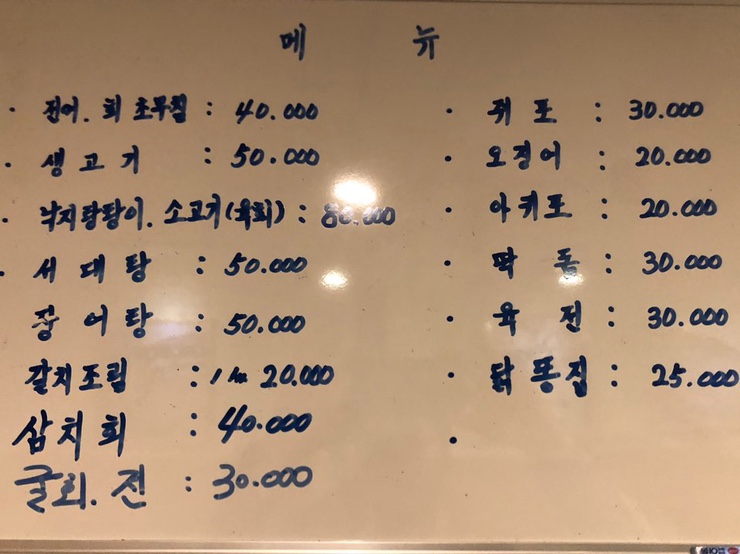 메 뉴
· 전어. 회 초무침 : 40.000
· 생고기 : 50.000
· 낙지탕탕이. 소고기(육회) : 80.000
· 서대탕 : 50.000
장어탕 : 50.000
갈치조림 : 1人 20.000
삼치회 : 40.000
굴회. 전 : 30.000
· 쥐포 : 30.000
· 오징어 : 20.000
· 아귀포 : 20.000
· 딱돔 : 30.000
· 육전 : 30.000
· 닭똥집 : 25.000
·